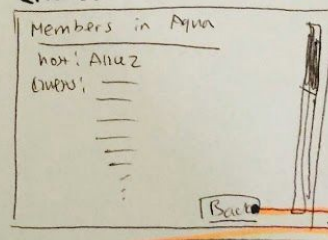 Members in Aqua
host: Alluz
Users:
Back